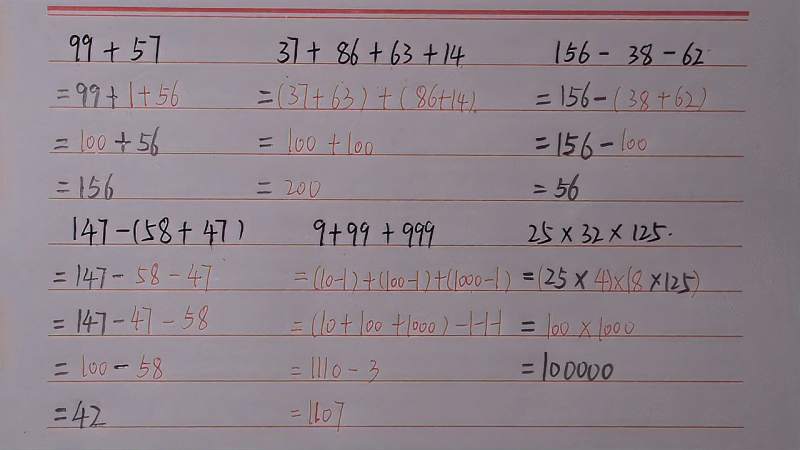 99 + 57
= 99 + 1 + 56
= 100 + 56
= 156
37 + 86 + 63 + 14
= (37+63) + (86+14)
= 100 + 100
= 200
156 - 38 - 62
= 156 - (38 + 62)
= 156 - 100
= 56
147 - (58 + 47)
= 147 - 58 - 47
= 147 - 47 - 58
= 100 - 58
= 42
9 + 99 + 999
= (10-1) + (100-1) + (1000-1)
= (10 + 100 + 1000) -1-1-1
= 1110 - 3
= 1107
25 × 32 × 125.
= (25 × 4) × (8 × 125)
= 100 × 1000
= 100000